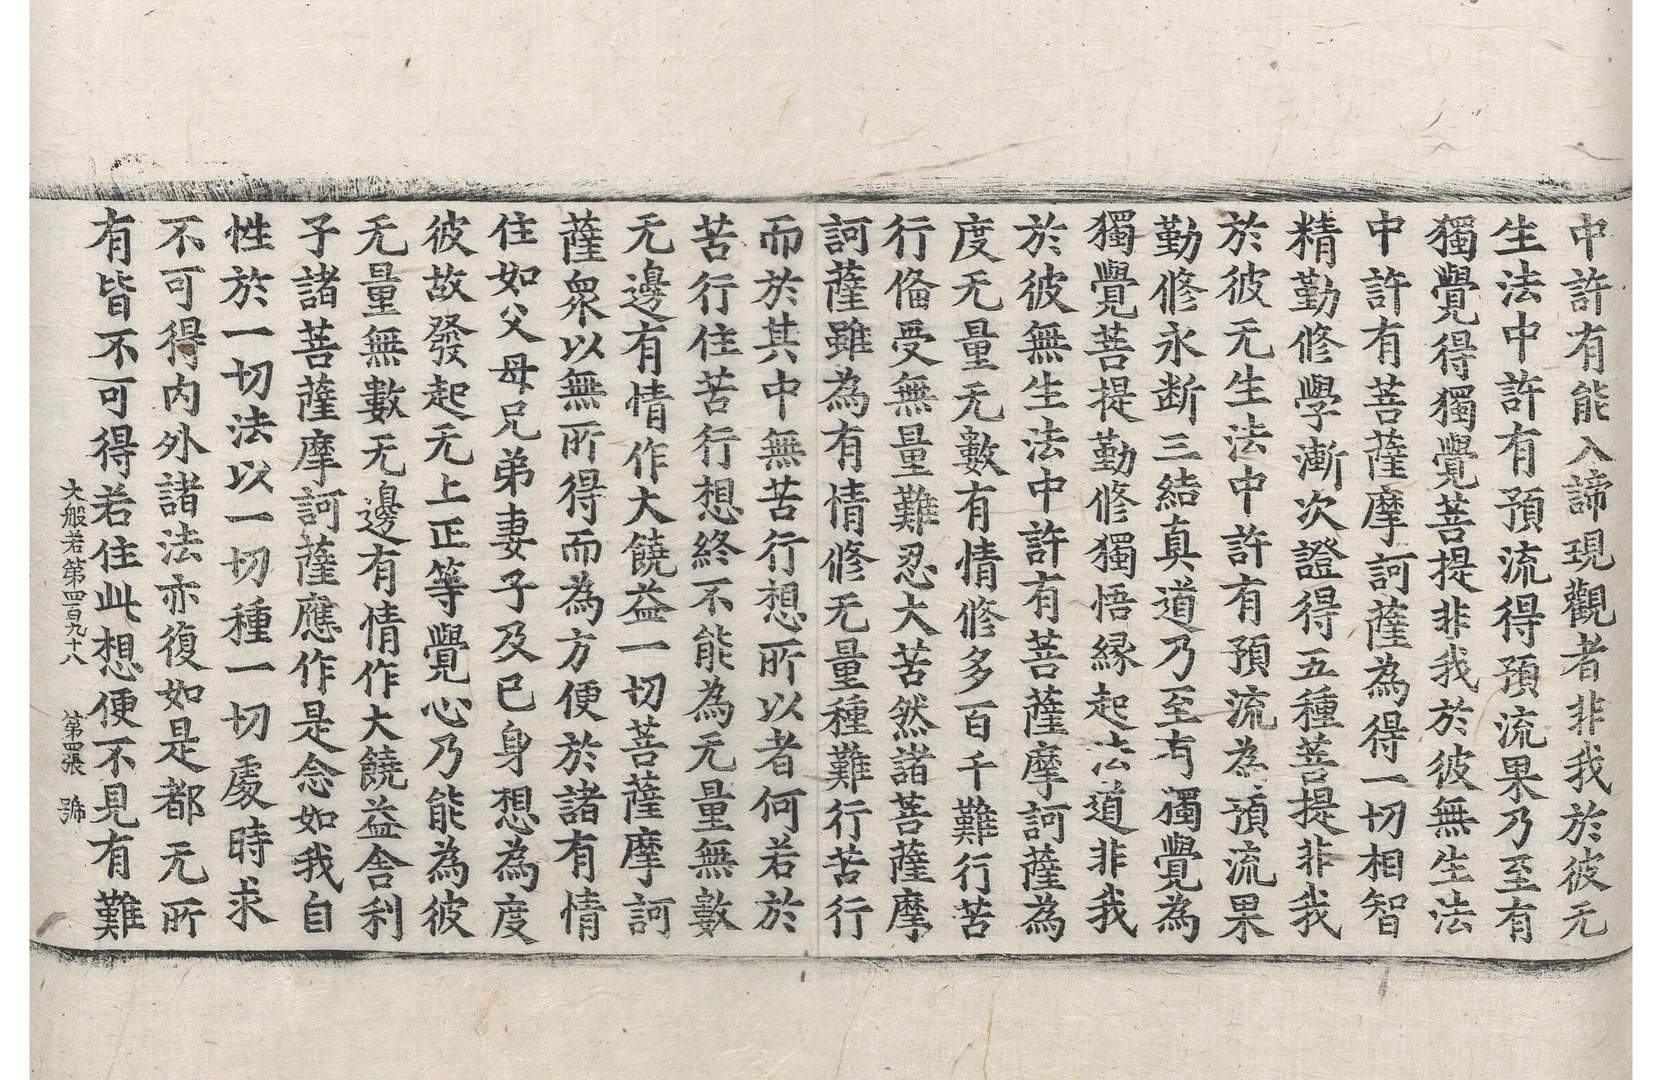 中許有能入諦現觀者非我於彼无
生法中許有預流得預流果乃至有
獨覺得獨覺菩提非我於彼無生法
中許有菩薩摩訶薩為得一切相智
精勤修學漸次證得五種菩提非我
於彼无生法中許有預流為預流果
勤修永断三結真道乃至有獨覺為
獨覺菩提勤修獨悟縁起法道非我
於彼無生法中許有菩薩摩訶薩為
度无量无數有情修多百千難行苦
行俻受無量難忍大苦然諸菩薩摩
訶薩雖為有情修无量種難行苦行
而於其中無苦行想所以者何若於
苦行住苦行想終不能為无量無數
无邊有情作大饒益一切菩薩摩訶
薩衆以無所得而為方便於諸有情
住如父母兄弟妻子及己身想為度
彼故發起无上正等覺心乃能為彼
无量無數无邊有情作大饒益舎利
子諸菩薩摩訶薩應作是念如我自
性於一切法以一切種一切處時求
不可得内外諸法亦復如是都无所
有皆不可得若住此想便不見有難
大般若第四百九十八 第四張 號